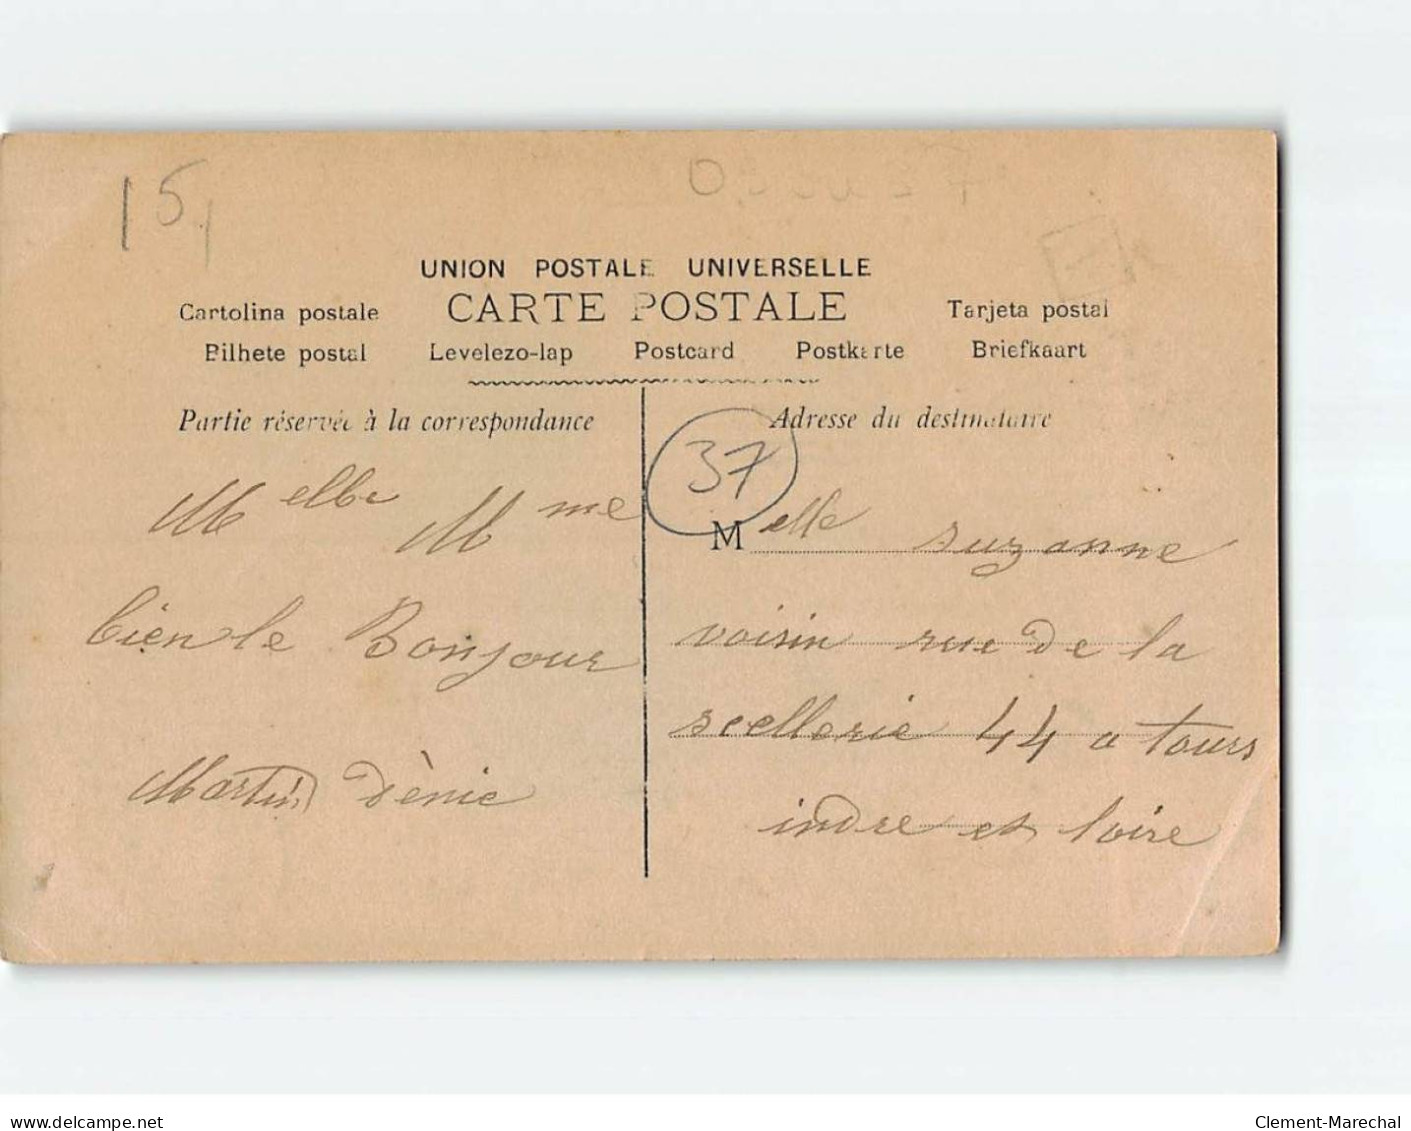 15
UNION POSTALE UNIVERSELLE
CARTE POSTALE
Cartolina postale
Tarjeta postal
Bilhete postal Levelezo-lap Postcard Postkarte Briefkaart
Partie réservée à la correspondance
Adresse du destinataire
37
Melle Mme
bien le Bonjour
Martin Dènie
Melle suzanne
voisin rue de la
scellerie 44 a tours
indre et loire
www.delcampe.net
Clement-Marechal